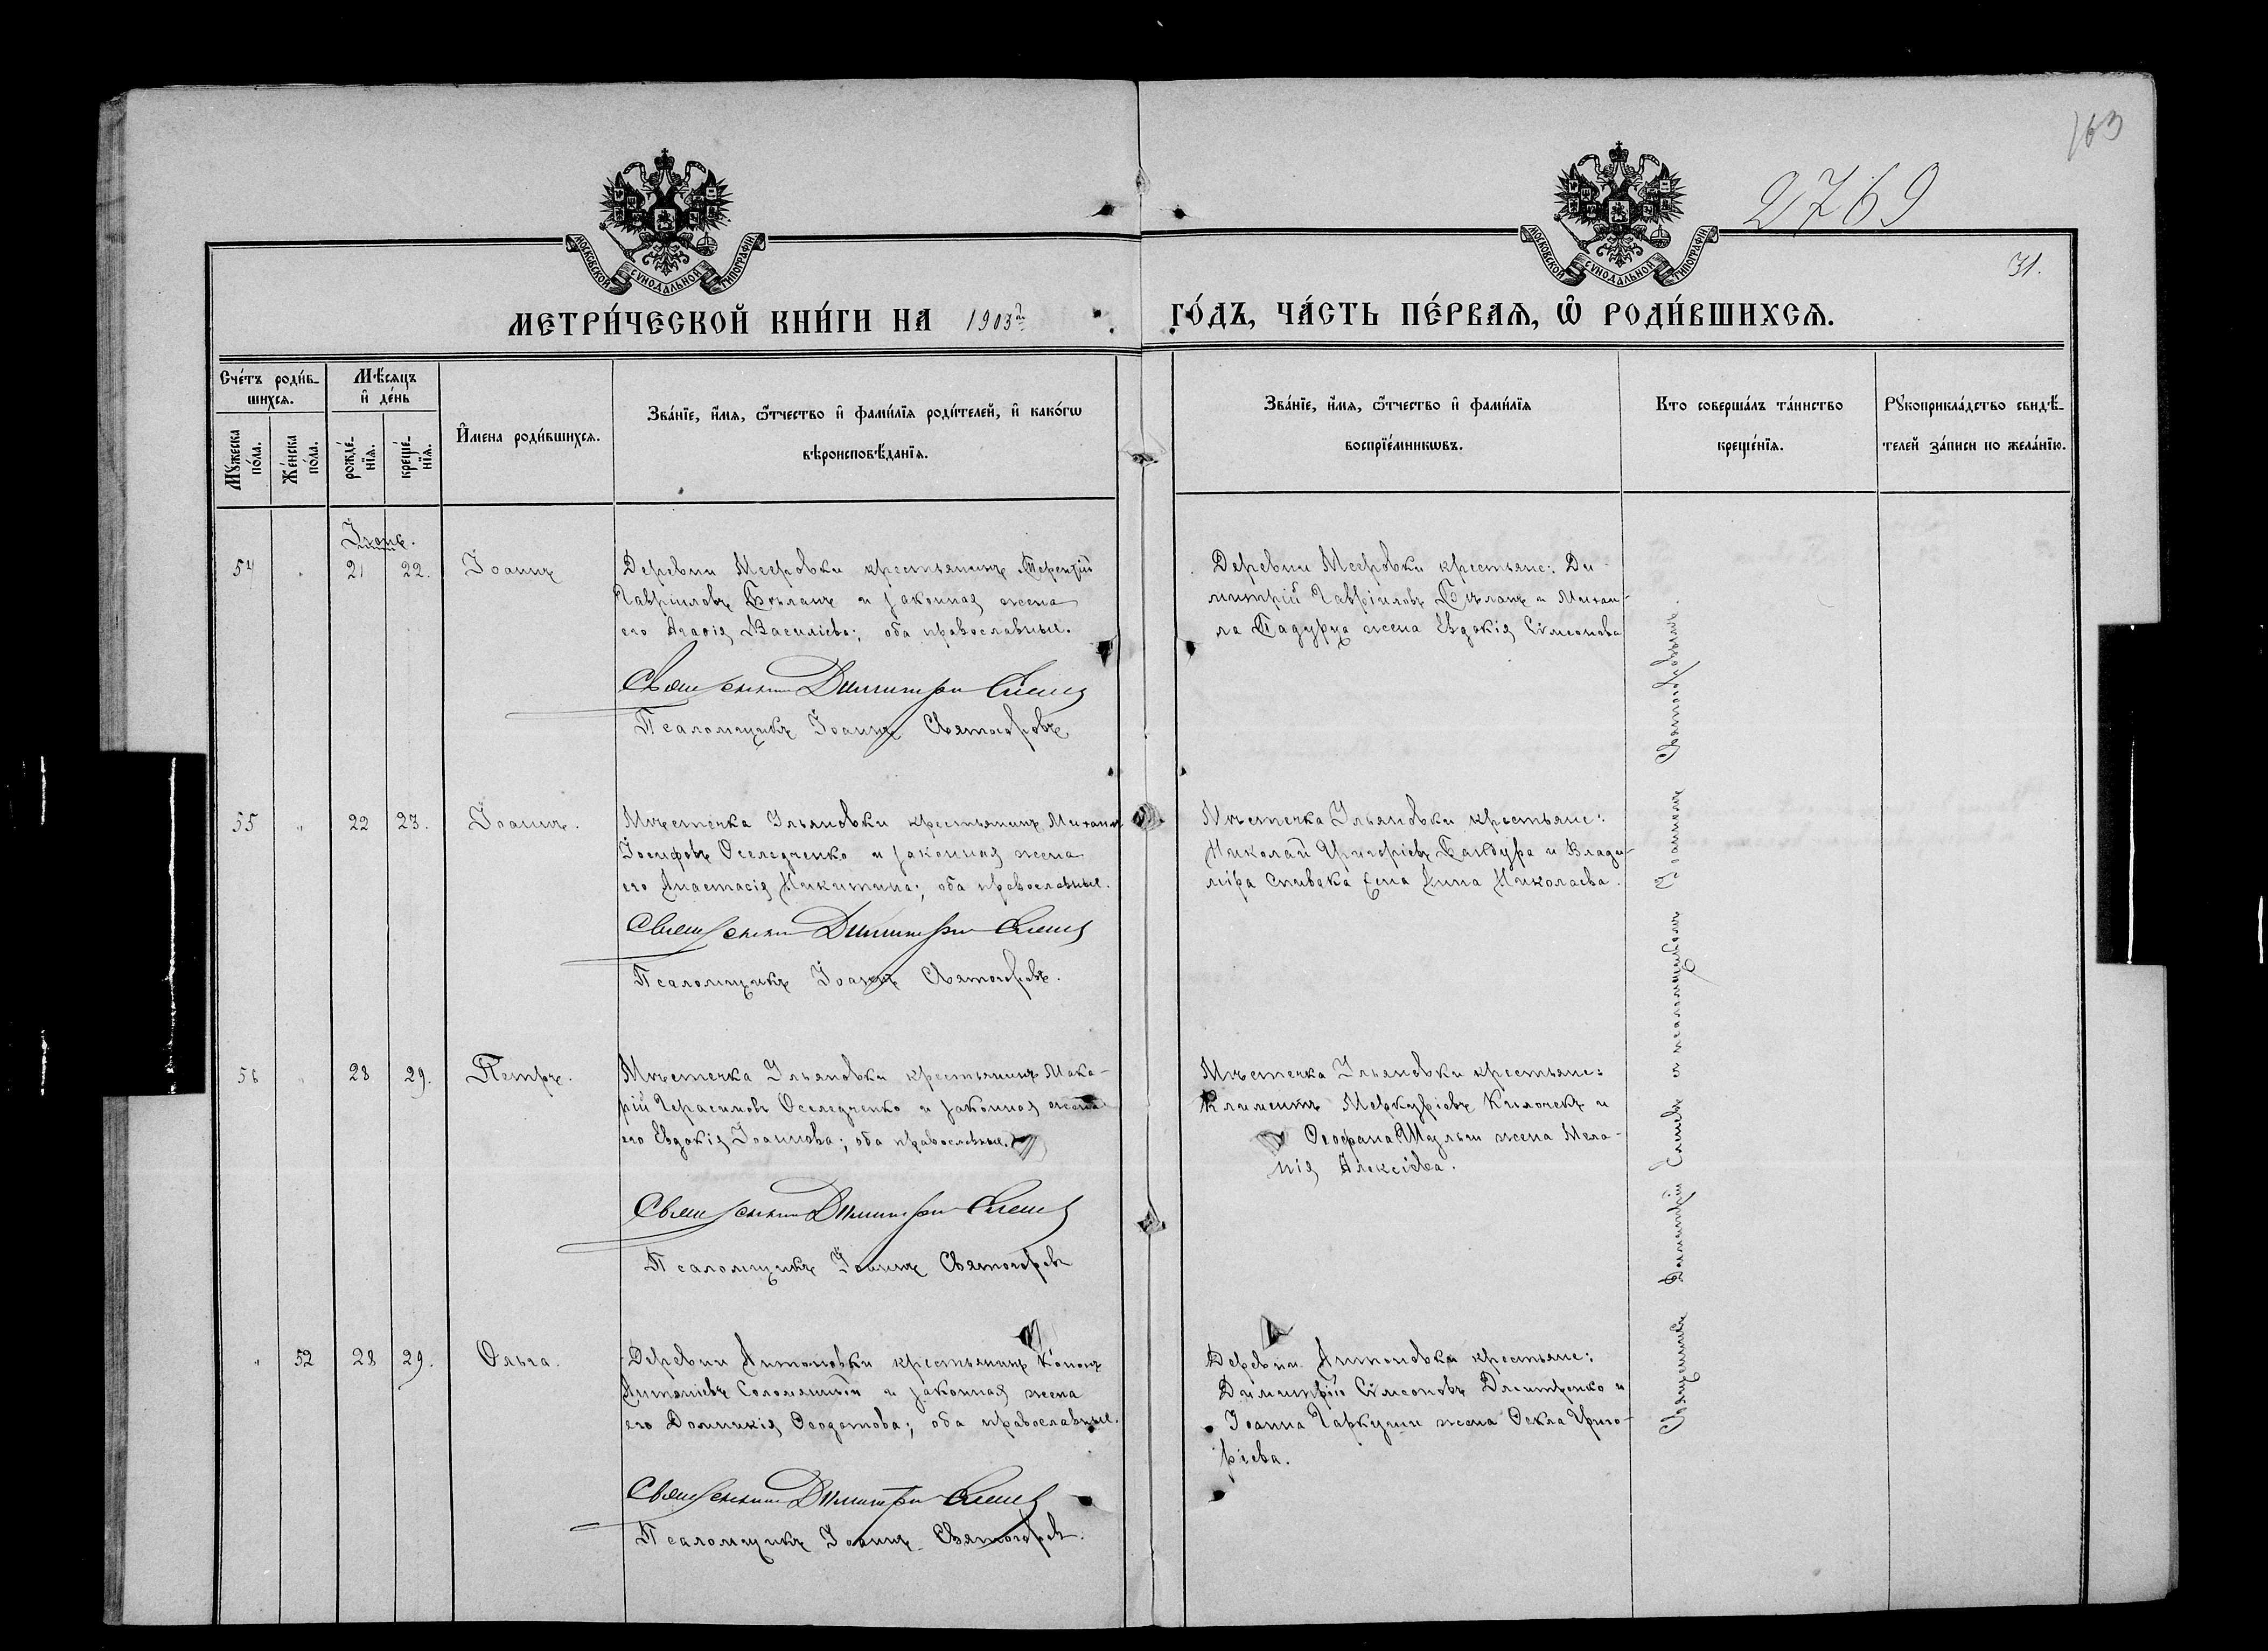 163
2769
31.
МОСКОВСКОЙ СУНОДАЛЬНОЙ ТИПОГРАФІИ
МОСКОВСКОЙ СУНОДАЛЬНОЙ ТИПОГРАФІИ
МЕТРИ́ЧЕСКОЙ КНИ́ГИ НА 1903 го́дъ, ЧА́СТЬ ПЕ́РВАѦ, Ѡ҆ РОДИ́ВШИХСѦ.
Сче́тъ роди́в-
шихсѧ.
Мѣ́сѧцъ
и҆ де́нь
Мꙋ́жеска
по́ла.
Же́нска
по́ла.
рожде́-
нїѧ.
креще́-
нїѧ.
И҆мена роди́вшихсѧ.
Зва́нїе, и҆́мѧ, ѻ҆́тчество и҆ фами́лїѧ роди́телей, и҆ како́гѡ
вѣроисповѣ́данїѧ.
Зва́нїе, и҆́мѧ, ѻ҆́тчество и҆ фами́лїѧ
воспрїе́мникѡвъ.
Кто соверша́лъ та́инство
креще́нїѧ.
Рꙋкоприкла́дство свидѣ́-
телей за́писи по жела́нїю.
Іюнь.
54 " 21 22. Іоаннъ
Деревни Мееровки крестьянинъ Терентій
Гавріиловъ Бѣланъ и законная жена
его Агафія Василіева; оба православные.
Священникъ Димитрій
Псаломщикъ Іоаннъ Святогоровъ
Деревни Мееровки крестьяне: Ди-
митрій Гавріиловъ Бѣланъ и Михаи-
ла жена Евдокія Сѵмеонова
55 " 22 23. Іоаннъ.
Мѣстечка Ульяновки крестьянинъ Михаилъ
Іосифовъ Оселедченко и законная жена
его Анастасія Никитина; оба православные.
Священникъ Димитрій
Псаломщикъ Іоаннъ Святогоровъ.
Мѣстечка Ульяновки крестьяне:
Николай Григоріевъ Бандура и Влади-
міра Спивака Анна Николаева.
56 " 28 29. Петръ.
Мѣстечка Ульяновки крестьянинъ Мака-
рій Герасимовъ Оселедченко и законная жена
его Евдокія Іоаннова; оба православные.
Священникъ Димитрій
Псаломщикъ Іоаннъ Святогоровъ
Мѣстечка Ульяновки крестьяне:
Климентъ Меркуріевъ и
Ѳеофана Шульги жена Мела-
нія Алексіева.
" 52 28 29. Ольга.
Деревни Антоновки крестьянинъ Кононъ
Антоніевъ и законная жена
его Домникія Ѳеодотова; оба православные.
Священникъ Димитрій
Псаломщикъ Іоаннъ Святогоровъ.
Деревни Антоновки крестьяне:
Димитрій Сѵмеоновъ Дмитренко и
Іоанна Гаркуши жена Ѳекла Григо-
ріева.
Священникъ Димитрій и псаломщикомъ Іоанномъ Святогоровымъ.